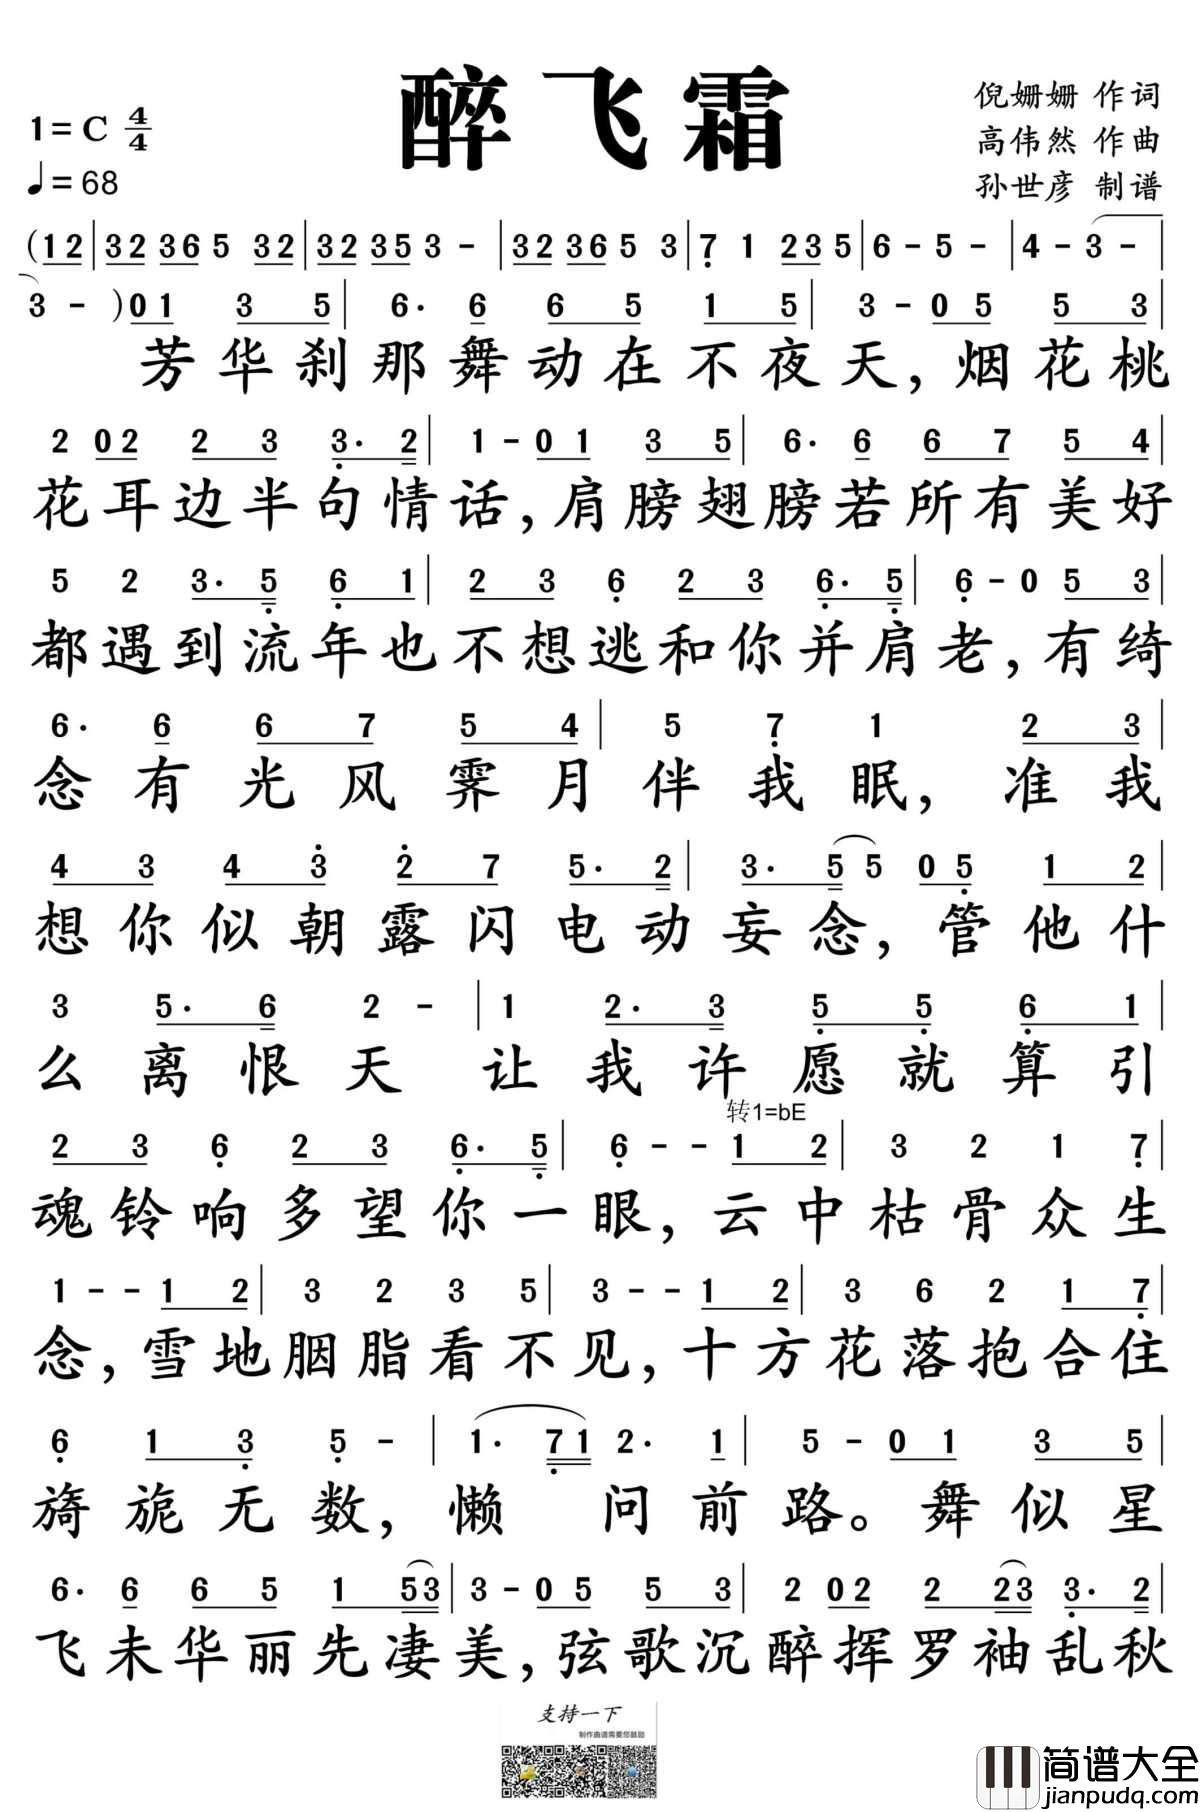 醉飞霜
倪姗姗 作词
1=C 4/4
高伟然 作曲
♩=68
孙世彦 制谱
(12|32 36 5 32|32 35 3 -|32 36 5 3|7 1 23 5|6 - 5 -|4 - 3 -|
3 - )01 3 5|6· 6 6 5 1 5|3 - 0 5 5 3|
芳华刹那舞动在不夜天,烟花桃
2 02 2 3 3· 2|1 - 0 1 3 5|6· 6 6 7 5 4|
花耳边半句情话,肩膀翅膀若所有美好
5 2 3· 5 6 1|2 3 6 2 3 6· 5|6 - 0 5 3|
都遇到流年也不想逃和你并肩老,有绮
6· 6 6 7 5 4|5 7 1 2 3|
念有光风霁月伴我眠,准我
4 3 4 3 2 7 5· 2|3· 5 5 0 5 1 2|
想你似朝露闪电动妄念,管他什
3 5· 6 2 -|1 2· 3 5 5 6 1|
么离恨天让我许愿就算引
转1=bE
2 3 6 2 3 6· 5|6 - - 1 2|3 2 1 7|
魂铃响多望你一眼,云中枯骨众生
1 - - 1 2|3 2 3 5|3 - - 1 2|3 6 2 1 7|
念,雪地胭脂看不见,十方花落抱合住
6 1 3 5 -|1· 71 2· 1|5 - 0 1 3 5|
旖旎无数,懒问前路。舞似星
6· 6 6 5 1 53|3 - 0 5 5 3|2 02 2 23 3· 2|
飞未华丽先凄美,弦歌沉醉挥罗袖乱秋
支持一下
制作曲谱需要您鼓励
简谱大全
jianpudq.com